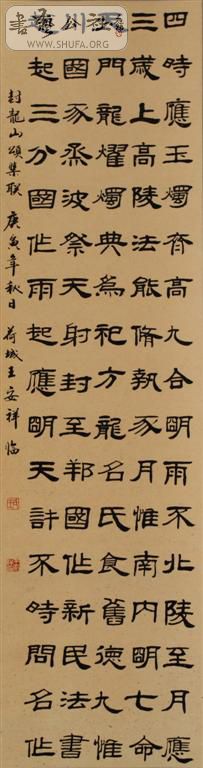 四時應玉燭齊高九合明雨不北陵至月應
三歲上高陵法能脩執豕月惟南內明七命
門龍燿燭典為祀方龍名氏食舊德九惟
國豕烝波祭天射封至邦國作新民法書
起三分國作雨起應明天許不時問名作
封龍山頌集联 庚寅年秋日 荷城王安祥临
WWW.SHUFA.ORG